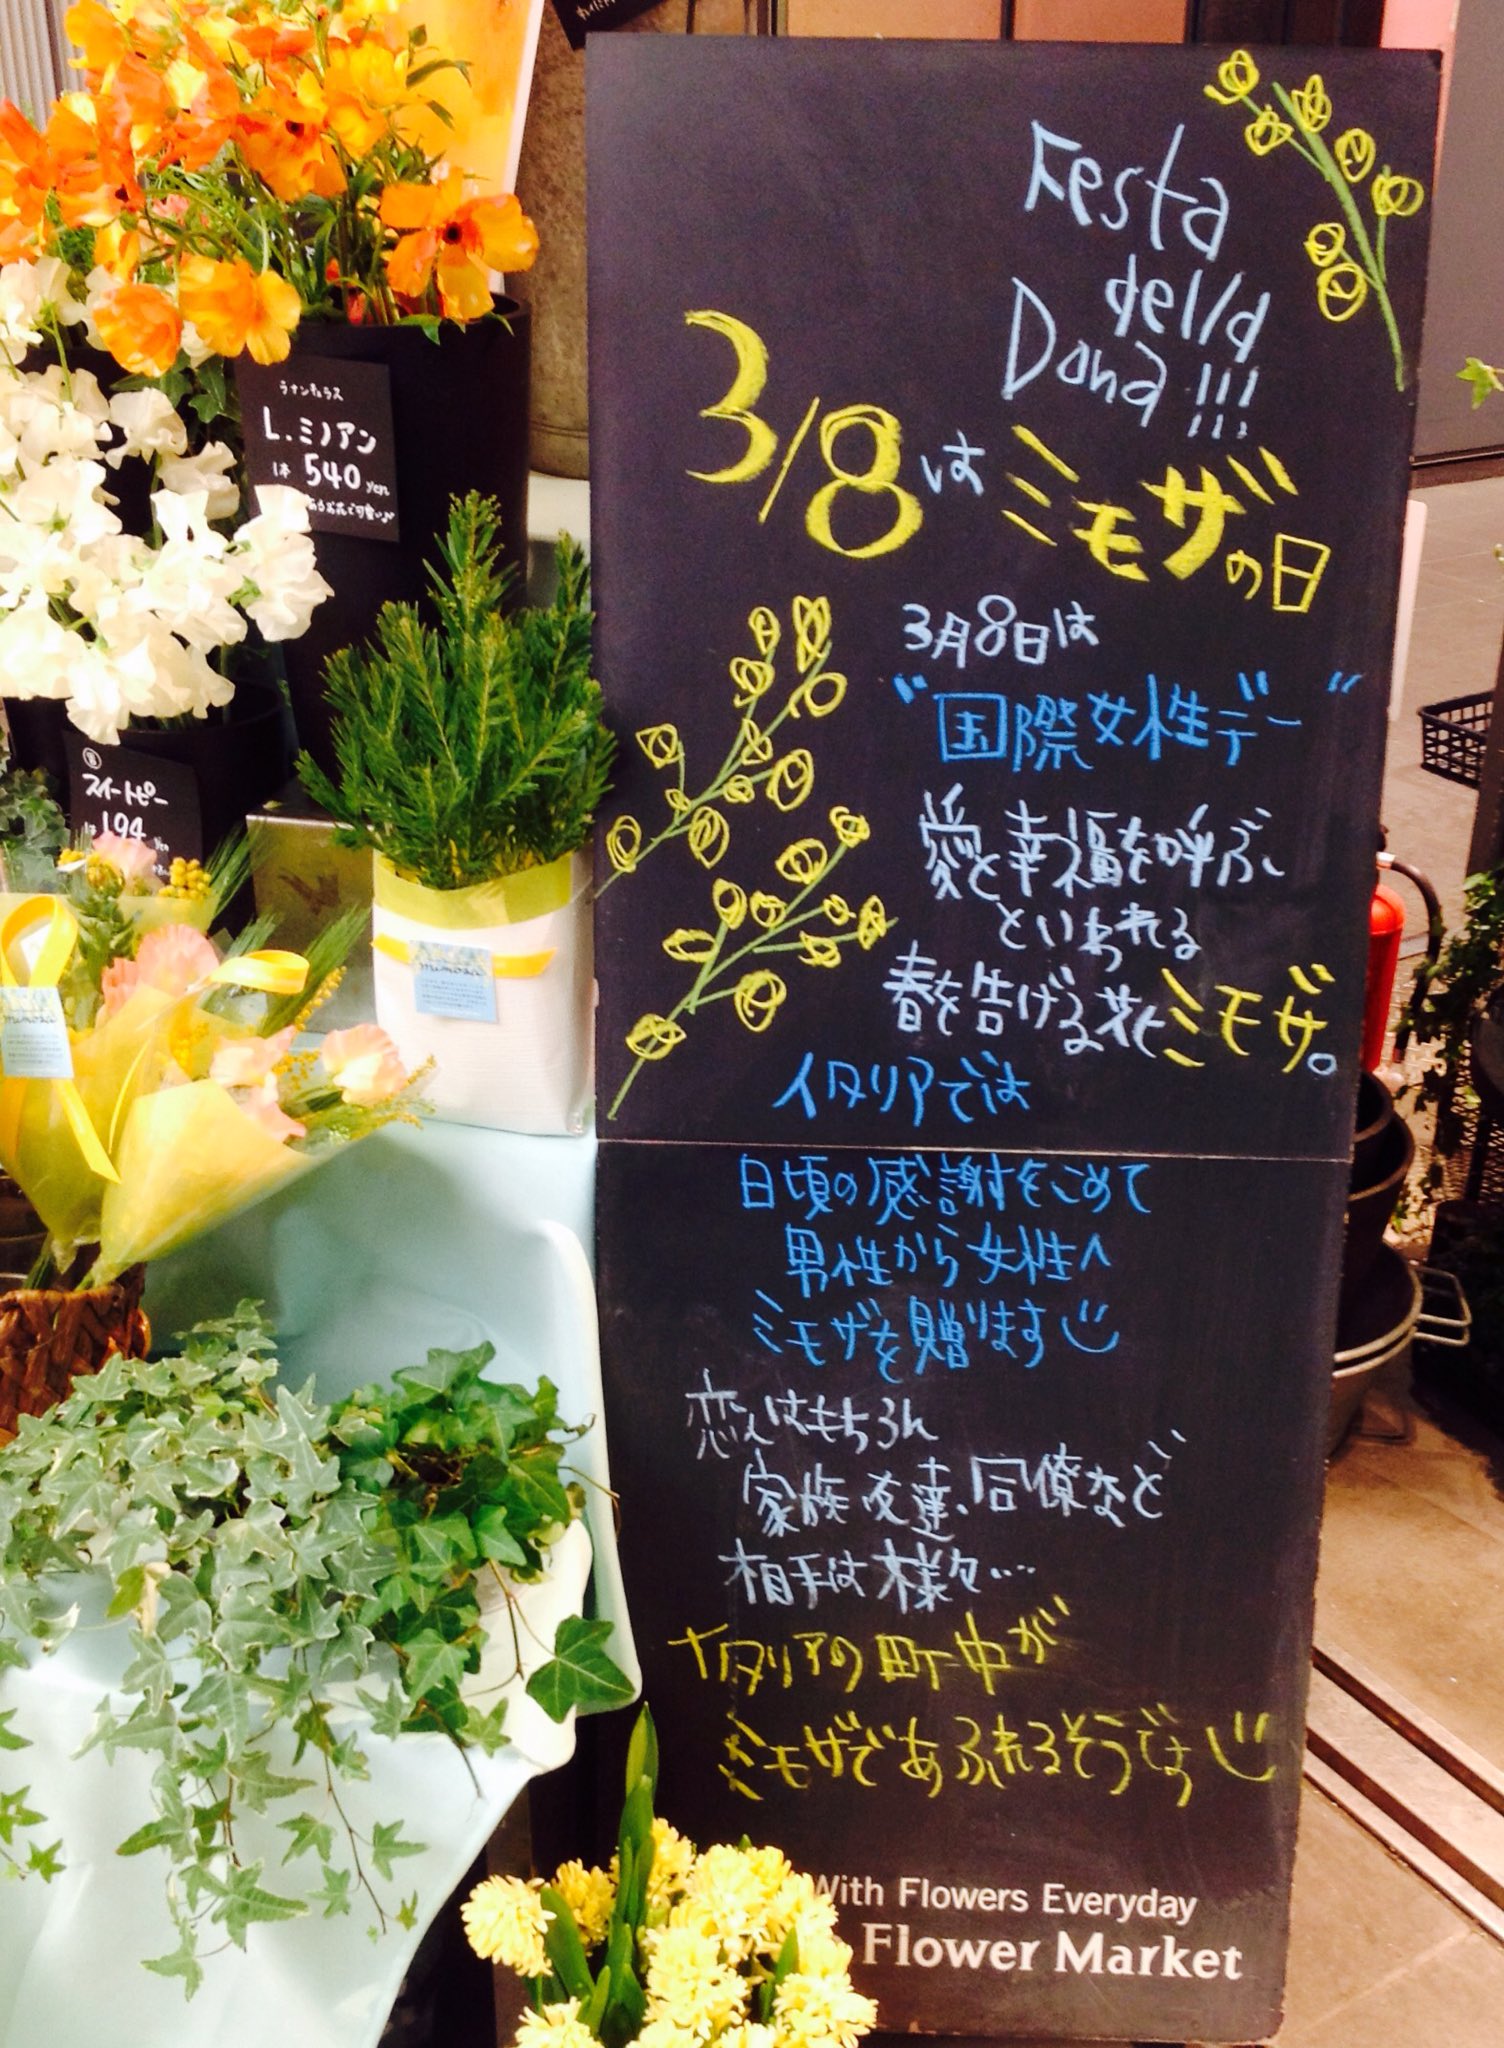 Festa
della
Dona!!!
3/8はミモザの日
3月8日は
"国際女性デー"
愛と幸福を呼ぶ
といわれる
春を告げる花ミモザ。
イタリアでは
日頃の感謝をこめて
男性から女性へ
ミモザを贈ります
恋人はもちろん
家族、友達、同僚など
相手は様々…
イタリアの町中が
ミモザであふれるそうですよ
With Flowers Everyday
Flower Market
ラナンキュラス
L.ミノアン
1本 540 yen
あるお花で可愛い♪
スイートピー
1本 194 yen
mimosa
mimosa